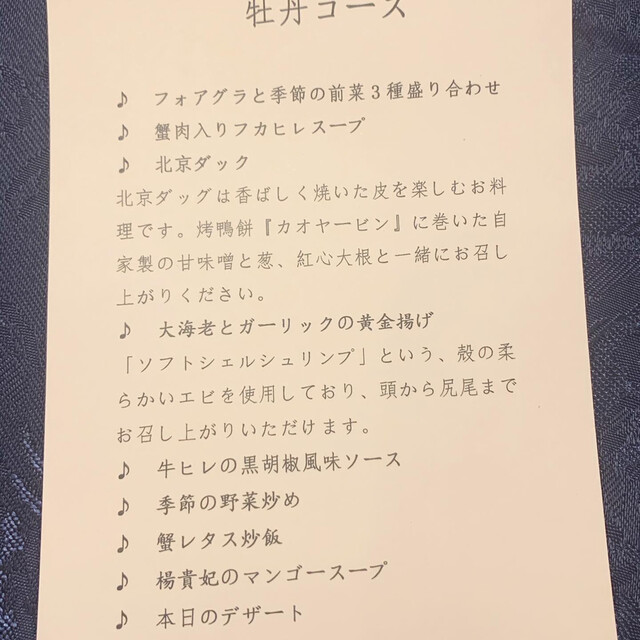 牡丹コース
♪ フォアグラと季節の前菜３種盛り合わせ
♪ 蟹肉入りフカヒレスープ
♪ 北京ダック
北京ダッグは香ばしく焼いた皮を楽しむお料
理です。烤鴨餅『カオヤービン』に巻いた自
家製の甘味噌と葱、紅心大根と一緒にお召し
上がりください。
♪ 大海老とガーリックの黄金揚げ
「ソフトシェルシュリンプ」という、殻の柔
らかいエビを使用しており、頭から尻尾まで
お召し上がりいただけます。
♪ 牛ヒレの黒胡椒風味ソース
♪ 季節の野菜炒め
♪ 蟹レタス炒飯
♪ 楊貴妃のマンゴースープ
♪ 本日のデザート